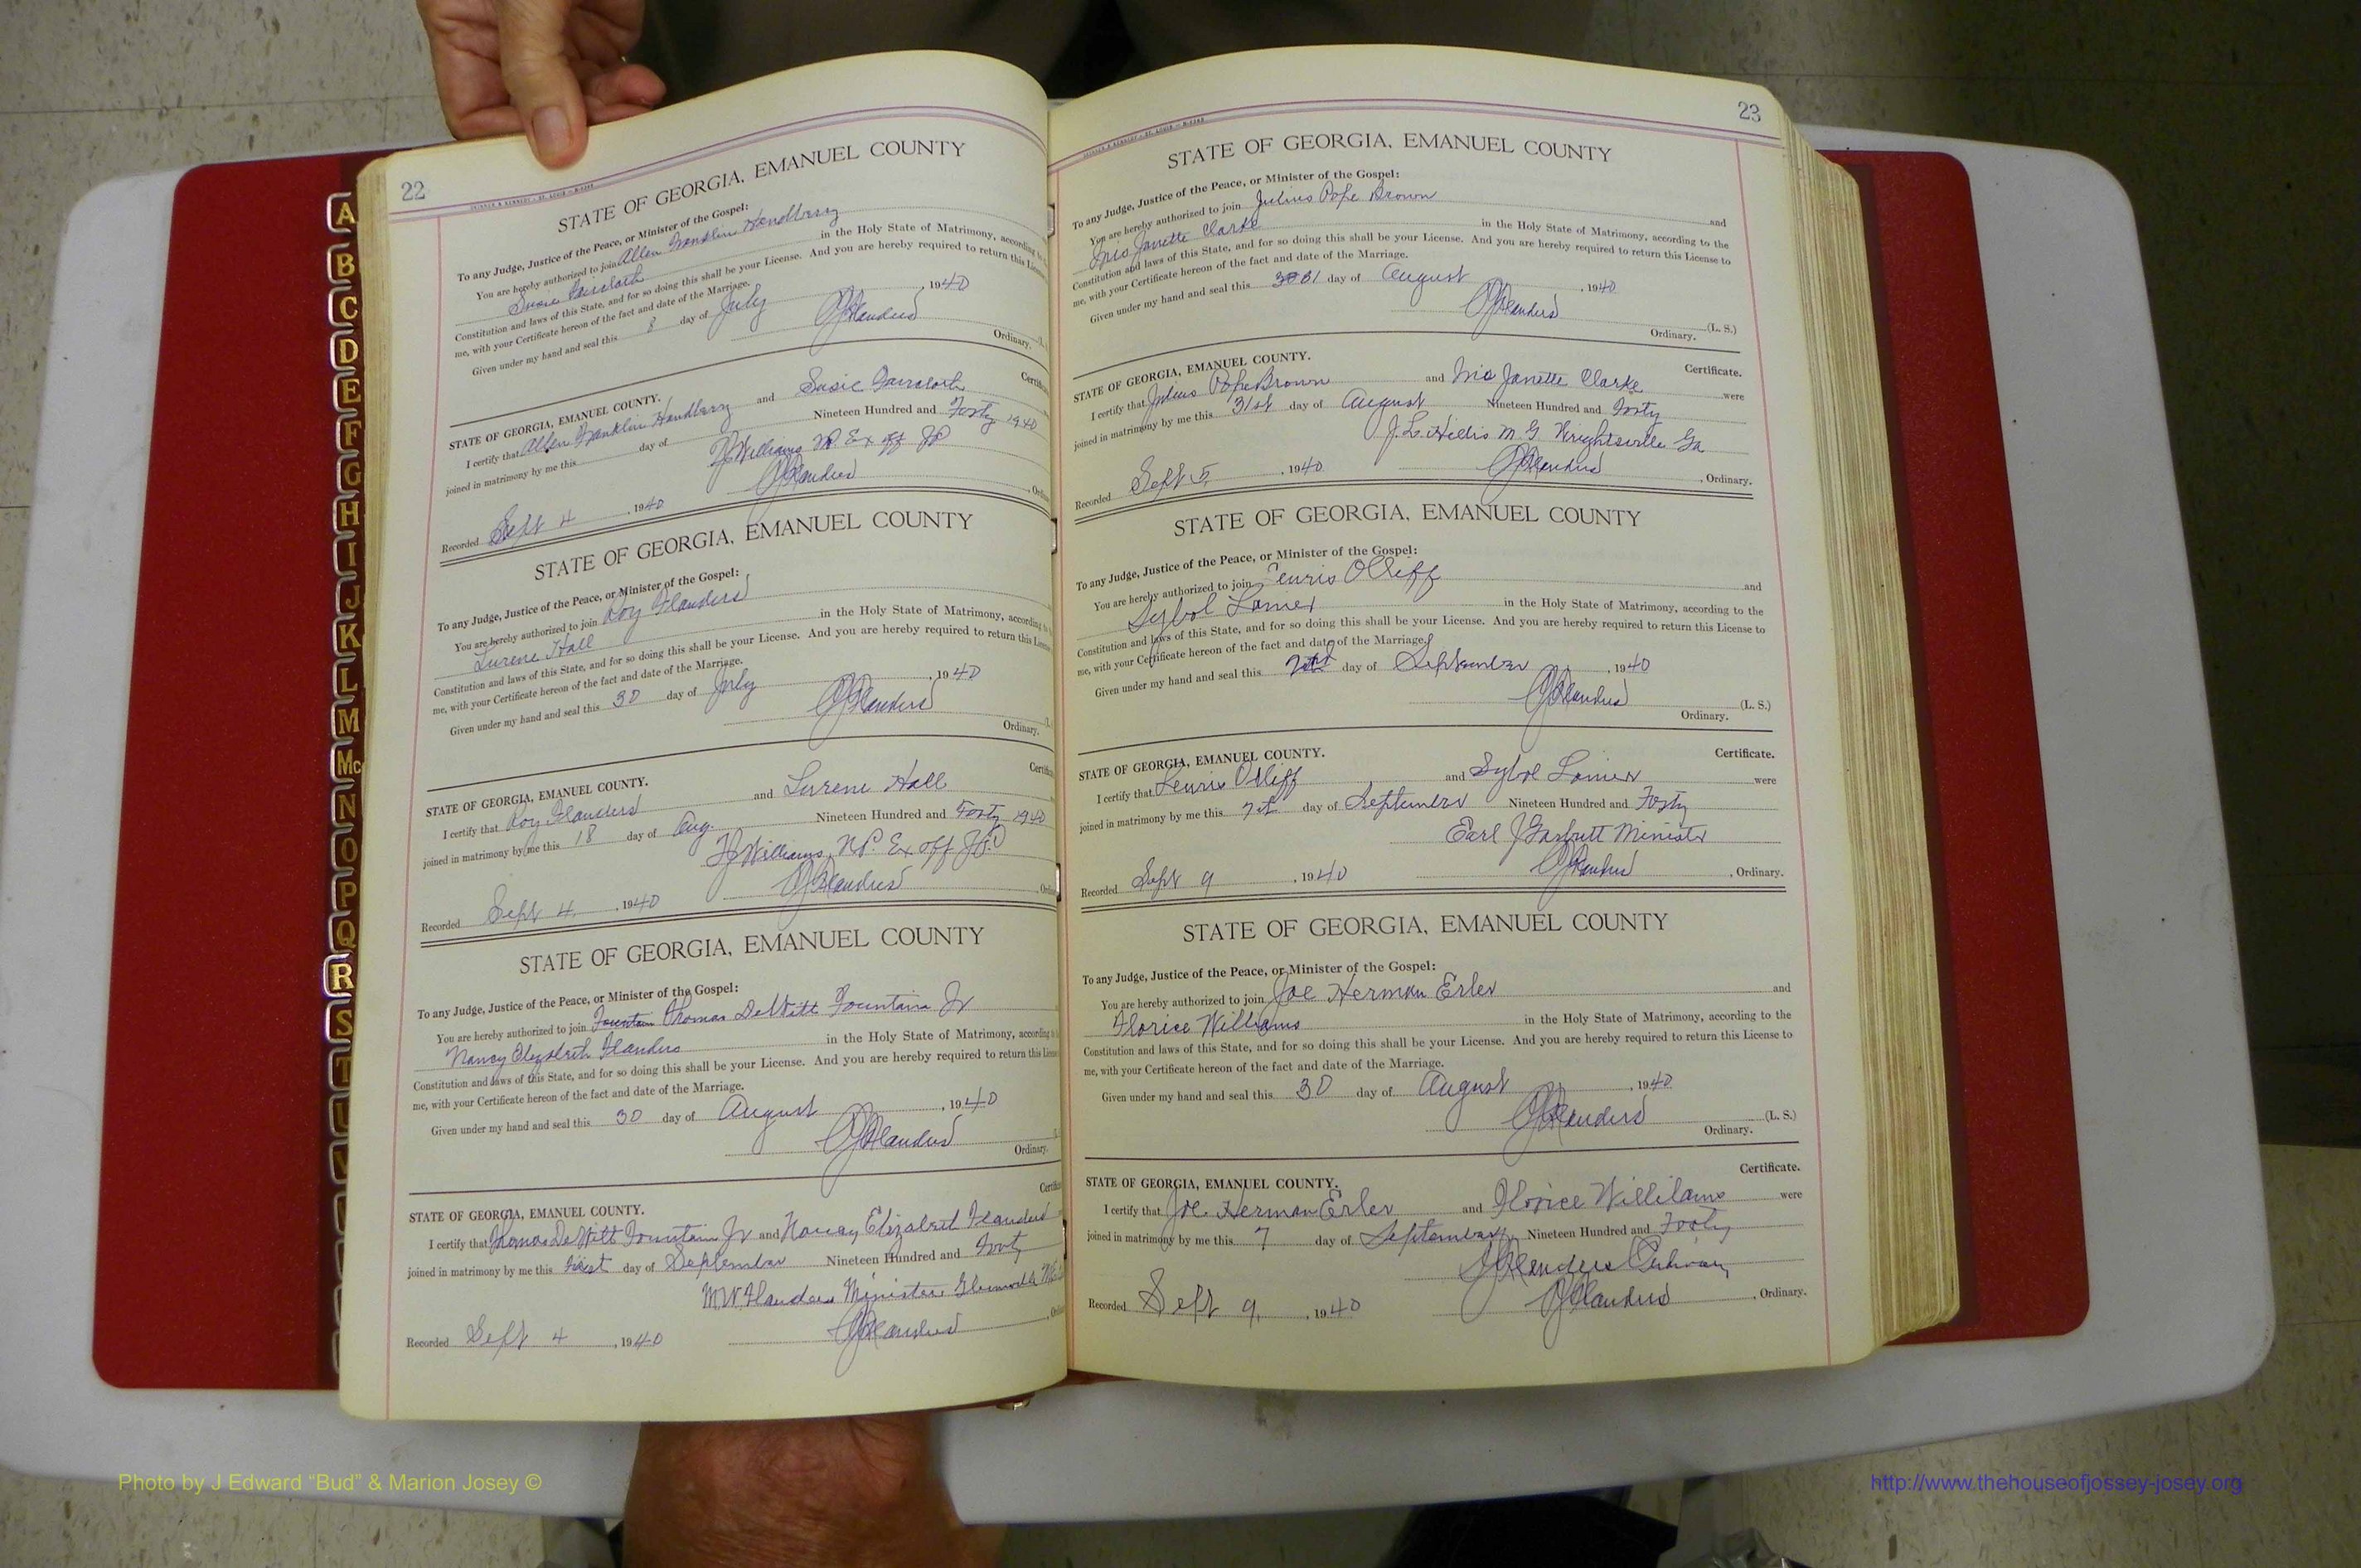 22
STATE OF GEORGIA, EMANUEL COUNTY
To any Judge, Justice of the Peace, or Minister of the Gospel:
You are hereby authorized to join Allen Franklin Handberry
Susie Faircloth in the Holy State of Matrimony, according
Constitution and laws of this State, and for so doing this shall be your License. And you are hereby required to return this
me, with your Certificate hereon of the fact and date of the Marriage.
Given under my hand and seal this 8 day of July , 1940
Flanders
Ordinary.
Certific
STATE OF GEORGIA, EMANUEL COUNTY.
I certify that Allen Franklin Handberry and Susie Faircloth
joined in matrimony by me this day of Nineteen Hundred and Forty 1940
Williams NP. Ex off JP
Recorded Sept 4 , 1940 Flanders
STATE OF GEORGIA, EMANUEL COUNTY
To any Judge, Justice of the Peace, or Minister of the Gospel:
You are hereby authorized to join Roy Flanders
Lurene Hall in the Holy State of Matrimony, according
Constitution and laws of this State, and for so doing this shall be your License. And you are hereby required to return this
me, with your Certificate hereon of the fact and date of the Marriage.
Given under my hand and seal this 30 day of July , 1940
Flanders
Ordinary.
STATE OF GEORGIA, EMANUEL COUNTY.
I certify that Roy Flanders and Lurene Hall
joined in matrimony by me this 18 day of Aug. Nineteen Hundred and Forty 1940
Williams, N.P. Ex off J.P.
Recorded Sept 4. , 1940 Flanders
STATE OF GEORGIA, EMANUEL COUNTY
To any Judge, Justice of the Peace, or Minister of the Gospel:
You are hereby authorized to join Fountain Thomas DeWitt Fountain Jr
Nancy Elizabeth Flanders in the Holy State of Matrimony, according
Constitution and laws of this State, and for so doing this shall be your License. And you are hereby required to return this
me, with your Certificate hereon of the fact and date of the Marriage.
Given under my hand and seal this 30 day of August , 1940
Flanders
Ordinary.
STATE OF GEORGIA, EMANUEL COUNTY.
I certify that Thomas DeWitt Fountain Jr and Nancy Elizabeth Flanders
joined in matrimony by me this first day of September Nineteen Hundred and Forty
M.W. Flanders Minister
Recorded Sept 4 , 1940 Flanders
23
STATE OF GEORGIA, EMANUEL COUNTY
To any Judge, Justice of the Peace, or Minister of the Gospel:
You are hereby authorized to join Julius Pope Brown and
Iris Janette Clarke in the Holy State of Matrimony, according to the
Constitution and laws of this State, and for so doing this shall be your License. And you are hereby required to return this License to
me, with your Certificate hereon of the fact and date of the Marriage.
Given under my hand and seal this 31 day of August , 1940
Flanders (L. S.)
Ordinary.
STATE OF GEORGIA, EMANUEL COUNTY. Certificate.
I certify that Julius Pope Brown and Iris Janette Clarke were
joined in matrimony by me this 31st day of August Nineteen Hundred and Forty
J. L. Hillis M. G. Wrightsville Ga
Recorded Sept 5, , 1940 Flanders , Ordinary.
STATE OF GEORGIA, EMANUEL COUNTY
To any Judge, Justice of the Peace, or Minister of the Gospel:
You are hereby authorized to join Olliff and
Sybol Lanier in the Holy State of Matrimony, according to the
Constitution and laws of this State, and for so doing this shall be your License. And you are hereby required to return this License to
me, with your Certificate hereon of the fact and date of the Marriage.
Given under my hand and seal this day of September , 1940
Flanders (L. S.)
Ordinary.
STATE OF GEORGIA, EMANUEL COUNTY. Certificate.
I certify that Olliff and Sybol Lanier were
joined in matrimony by me this day of September Nineteen Hundred and Forty
Earl J Garbutt Minister
Recorded Sept 9 , 1940 Flanders , Ordinary.
STATE OF GEORGIA, EMANUEL COUNTY
To any Judge, Justice of the Peace, or Minister of the Gospel:
You are hereby authorized to join Joe Herman Erler and
Florice Williams in the Holy State of Matrimony, according to the
Constitution and laws of this State, and for so doing this shall be your License. And you are hereby required to return this License to
me, with your Certificate hereon of the fact and date of the Marriage.
Given under my hand and seal this 30 day of August , 1940
Flanders (L. S.)
Ordinary.
STATE OF GEORGIA, EMANUEL COUNTY. Certificate.
I certify that Joe Herman Erler and Florice Williams were
joined in matrimony by me this 7 day of September Nineteen Hundred and Forty
Flanders Ordinary
Recorded Sept 9, , 1940 Flanders , Ordinary.
A
B
C
D
E
F
G
H
I
J
K
L
M
Mc
N
O
P
Q
R
S
T
U
V
Photo by J Edward “Bud” & Marion Josey ©
http://www.thehouseofjossey-josey.org